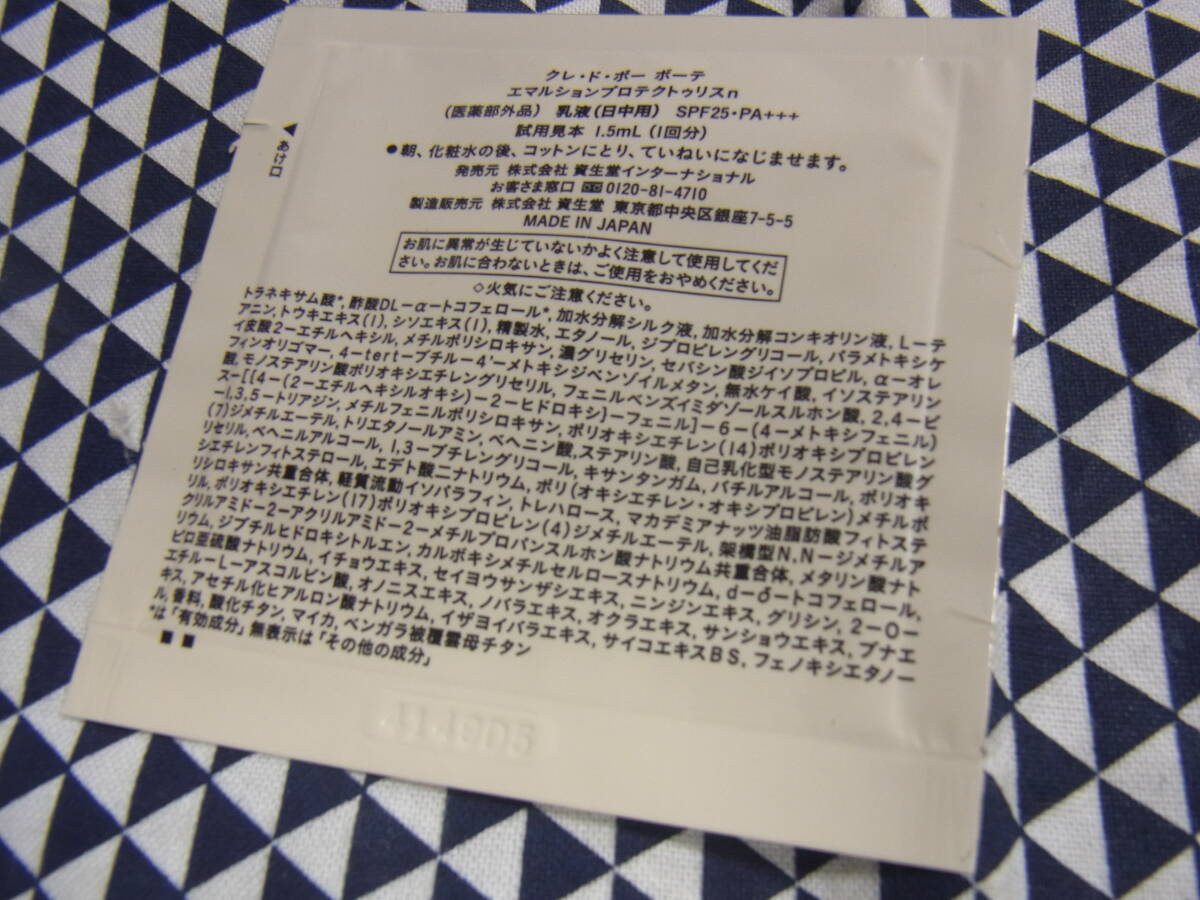 クレ・ド・ポー ボーテ
エマルションプロテクトゥリスn
(医薬部外品) 乳液(日中用) SPF25・PA+++
試用見本 1.5mL (1回分)
●朝、化粧水の後、コットンにとり、ていねいになじませます。
発売元 株式会社 資生堂インターナショナル
お客さま窓口 0120-81-4710
製造販売元 株式会社 資生堂 東京都中央区銀座7-5-5
MADE IN JAPAN
お肌に異常が生じていないかよく注意して使用してくだ
さい。お肌に合わないときは、ご使用をおやめください。
◇火気にご注意ください。
トラネキサム酸*, 酢酸DL-α-トコフェロール*, 加水分解シルク液, 加水分解コンキオリン液, L-テ
アニン, トウキエキス(1), シソエキス(1), 精製水, エタノール, ジプロピレングリコール, パラメトキシケ
イ皮酸2-エチルヘキシル, メチルポリシロキサン, 濃グリセリン, セバシン酸ジイソプロピル, α-オレ
フィンオリゴマー, 4-tert-ブチル-4'-メトキシジベンゾイルメタン, 無水ケイ酸, イソステアリン
酸, モノステアリン酸ポリオキシエチレングリセリル, フェニルベンズイミダゾールスルホン酸, 2,4-ビ
ス-[{4-(2-エチルヘキシルオキシ)-2-ヒドロキシ}-フェニル]-6-(4-メトキシフェニル)
-1,3,5-トリアジン, メチルフェニルポリシロキサン, ポリオキシエチレン(14)ポリオキシプロピレン
(7)ジメチルエーテル, トリエタノールアミン, ベヘニン酸, ステアリン酸, 自己乳化型モノステアリン酸グ
リセリル, ベヘニルアルコール, 1,3-ブチレングリコール, キサンタンガム, バチルアルコール, ポリオキ
シエチレンフィトステロール, エデト酸二ナトリウム, ポリ(オキシエチレン・オキシプロピレン)メチルポ
リシロキサン共重合体, 軽質流動イソパラフィン, トレハロース, マカデミアナッツ油脂肪酸フィトステ
リル, ポリオキシエチレン(17)ポリオキシプロピレン(4)ジメチルエーテル, 架橋型N,N-ジメチルア
クリルアミド-2-アクリルアミド-2-メチルプロパンスルホン酸ナトリウム共重合体, メタリン酸ナト
リウム, ジブチルヒドロキシトルエン, カルボキシメチルセルロースナトリウム, d-δ-トコフェロール,
ピロ亜硫酸ナトリウム, イチョウエキス, セイヨウサンザシエキス, ニンジンエキス, グリシン, 2-O-
エチル-L-アスコルビン酸, オノニスエキス, ノバラエキス, オクラエキス, サンショウエキス, ブナエ
キス, アセチル化ヒアルロン酸ナトリウム, イザヨイバラエキス, サイコエキスBS, フェノキシエタノー
ル, 香料, 酸化チタン, マイカ, ベンガラ被覆雲母チタン
*は「有効成分」無表示は「その他の成分」
■ ■
◀あけ口